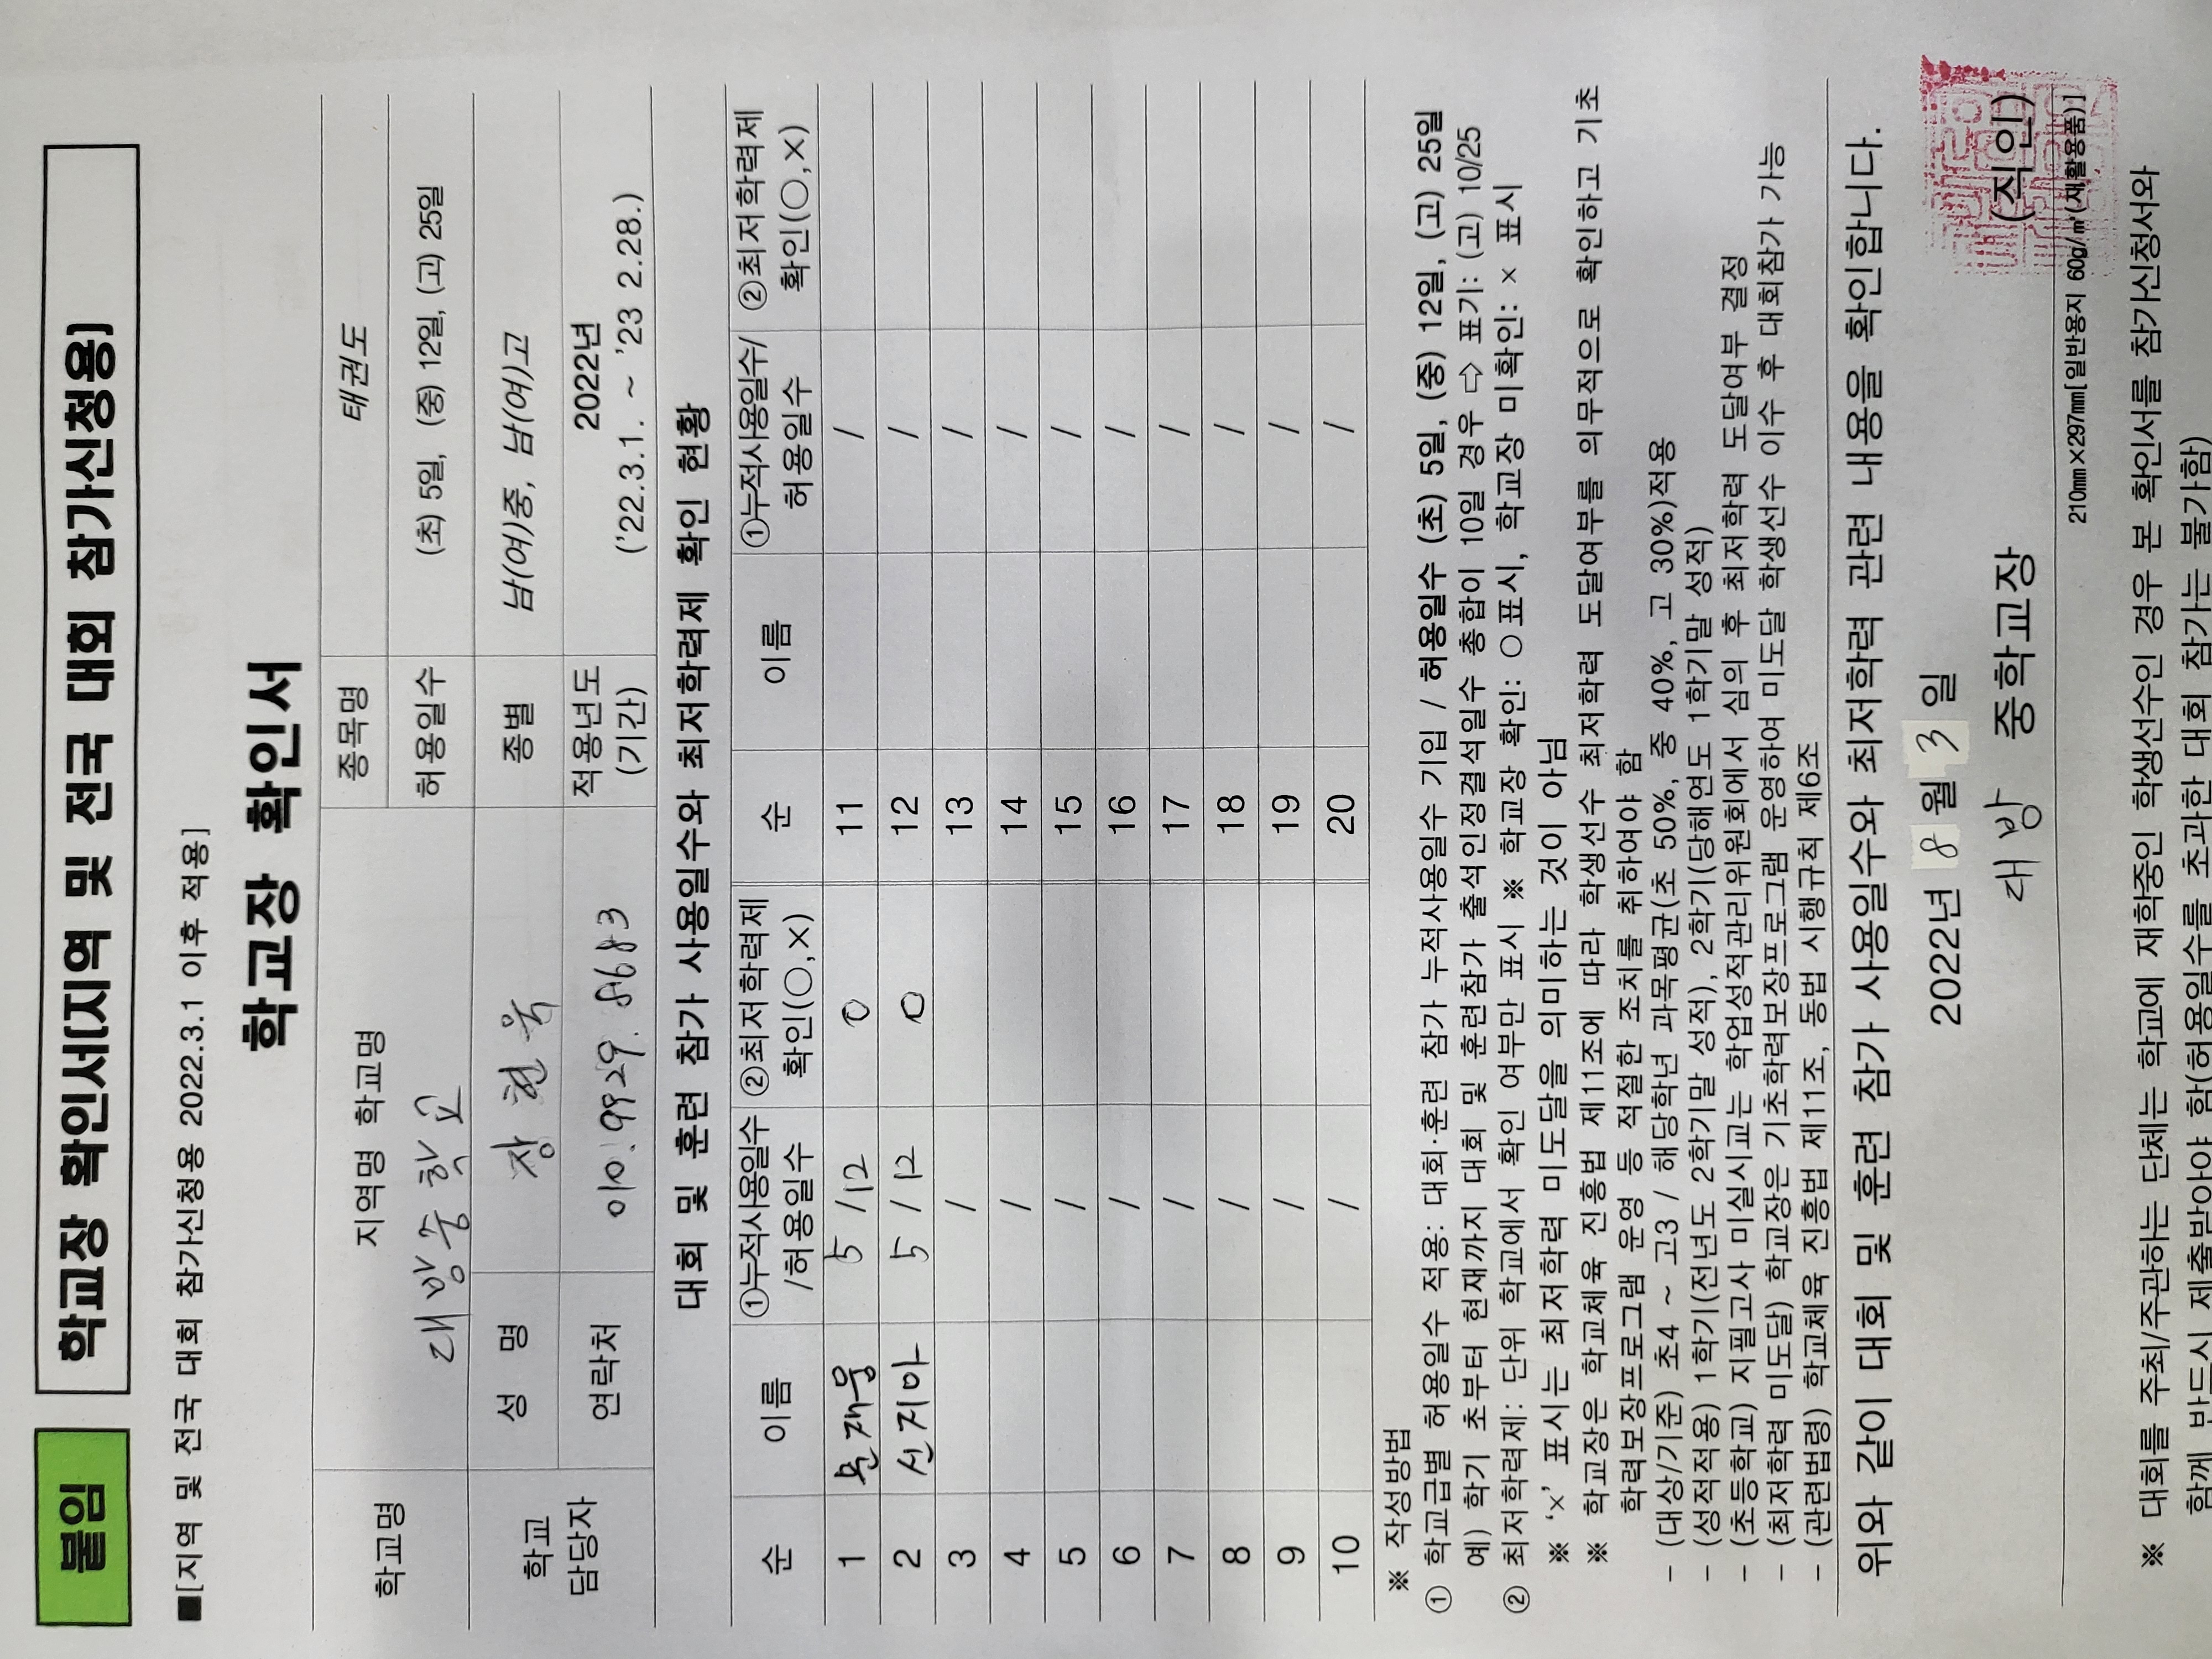 붙임
학교장 확인서[지역 및 전국 대회 참가신청용]
■[지역 및 전국 대회 참가신청용 2022.3.1 이후 적용]
학교장 확인서
학교명 지역명 학교명 대방중학교 종목명 태권도
허용일수 (초) 5일, (중) 12일, (고) 25일
학교 담당자 성 명 장현욱 종별 남(여)중, 남(여)고
연락처 010.9929.8683 적용년도 (기간) 2022년 ('22.3.1. ~ '23 2.28.)
대회 및 훈련 참가 사용일수와 최저학력제 확인 현황
순 이름 ①누적사용일수/허용일수 ②최저학력제 확인(○,×) 순 이름 ①누적사용일수/허용일수 ②최저학력제 확인(○,×)
1 문재웅 5/12 ○ 11 /
2 신지아 5/12 ○ 12 /
3 / 13 /
4 / 14 /
5 / 15 /
6 / 16 /
7 / 17 /
8 / 18 /
9 / 19 /
10 / 20 /
※ 작성방법
① 학교급별 허용일수 적용: 대회·훈련 참가 누적사용일수 기입 / 허용일수 (초) 5일, (중) 12일, (고) 25일
예) 학기 초부터 현재까지 대회 및 훈련참가 출석인정결석일수 총합이 10일 경우 ⇨ 표기: (고) 10/25
② 최저학력제: 단위 학교에서 확인 여부만 표시 ※ 학교장 확인: ○ 표시, 학교장 미확인: × 표시
※ '×' 표시는 최저학력 미도달을 의미하는 것이 아님
※ 학교장은 학교체육 진흥법 제11조에 따라 학생선수 최저학력 도달여부를 의무적으로 확인하고 기초
학력보장프로그램 운영 등 적절한 조치를 취하여야 함
- (대상/기준) 초4 ~ 고3 / 해당학년 과목평균(초 50%, 중 40%, 고 30%)적용
- (성적적용) 1학기(전년도 2학기말 성적), 2학기(당해연도 1학기말 성적)
- (초등학교) 지필고사 미실시교는 학업성적관리위원회에서 심의 후 최저학력 도달여부 결정
- (최저학력 미도달) 학교장은 기초학력보장프로그램 운영하여 미도달 학생선수 이수 후 대회참가 가능
- (관련법령) 학교체육 진흥법 제11조, 동법 시행규칙 제6조
위와 같이 대회 및 훈련 참가 사용일수와 최저학력 관련 내용을 확인합니다.
2022년 8월 3일
대방 중학교장 (직인)
210㎜×297㎜[일반용지 60g/㎡(재활용품)]
※ 대회를 주최/주관하는 단체는 학교에 재학중인 학생선수인 경우 본 확인서를 참가신청서와
함께 반드시 제출받아야 함(허용일수를 초과한 대회 참가는 불가함)